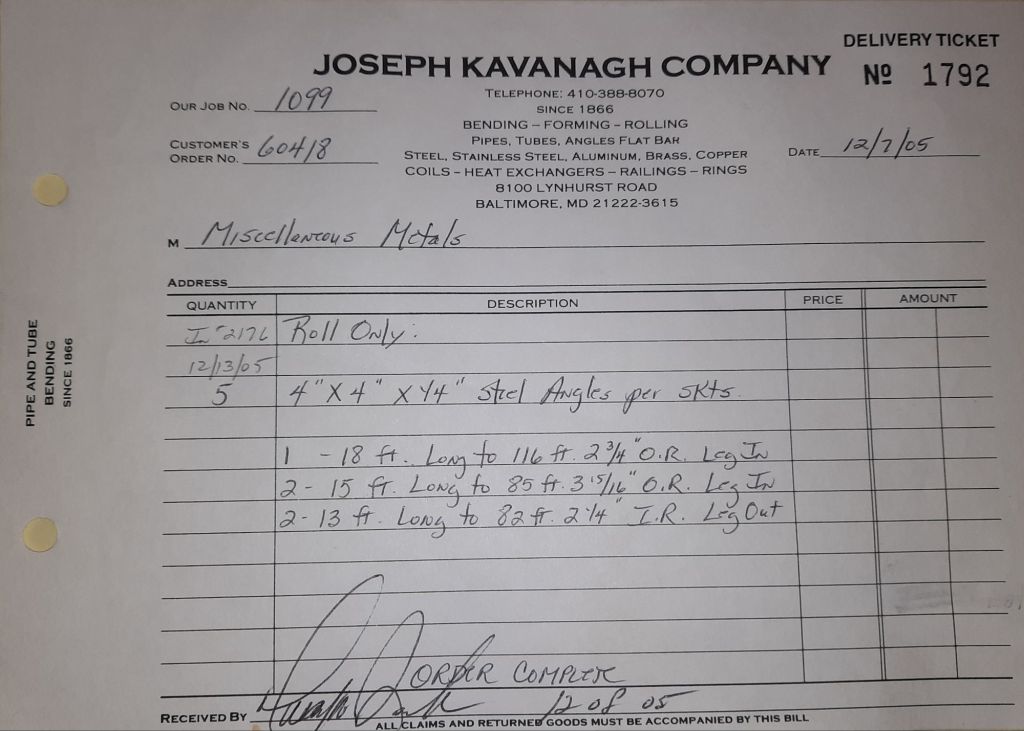 DELIVERY TICKET
JOSEPH KAVANAGH COMPANY
Nº 1792
TELEPHONE: 410-388-8070
OUR JOB NO. 1099
SINCE 1866
BENDING – FORMING – ROLLING
CUSTOMER'S
ORDER NO. 60418
PIPES, TUBES, ANGLES FLAT BAR
STEEL, STAINLESS STEEL, ALUMINUM, BRASS, COPPER
DATE 12/7/05
COILS – HEAT EXCHANGERS – RAILINGS – RINGS
8100 LYNHURST ROAD
BALTIMORE, MD 21222-3615
M Miscellaneous Metals
ADDRESS
QUANTITY DESCRIPTION PRICE AMOUNT
Roll Only:
12/13/05
5 4" X 4" X 1/4" Steel Angles per skts.
1 - 18 ft. Long to 116 ft. 2 3/4" O.R. Leg In
2 - 15 ft. Long to 85 ft. 3 15/16" O.R. Leg In
2 - 13 ft. Long to 82 ft. 2 1/4" I.R. Leg Out
ORDER COMPLETE
RECEIVED BY 12 08 05
ALL CLAIMS AND RETURNED GOODS MUST BE ACCOMPANIED BY THIS BILL
PIPE AND TUBE
BENDING
SINCE 1866